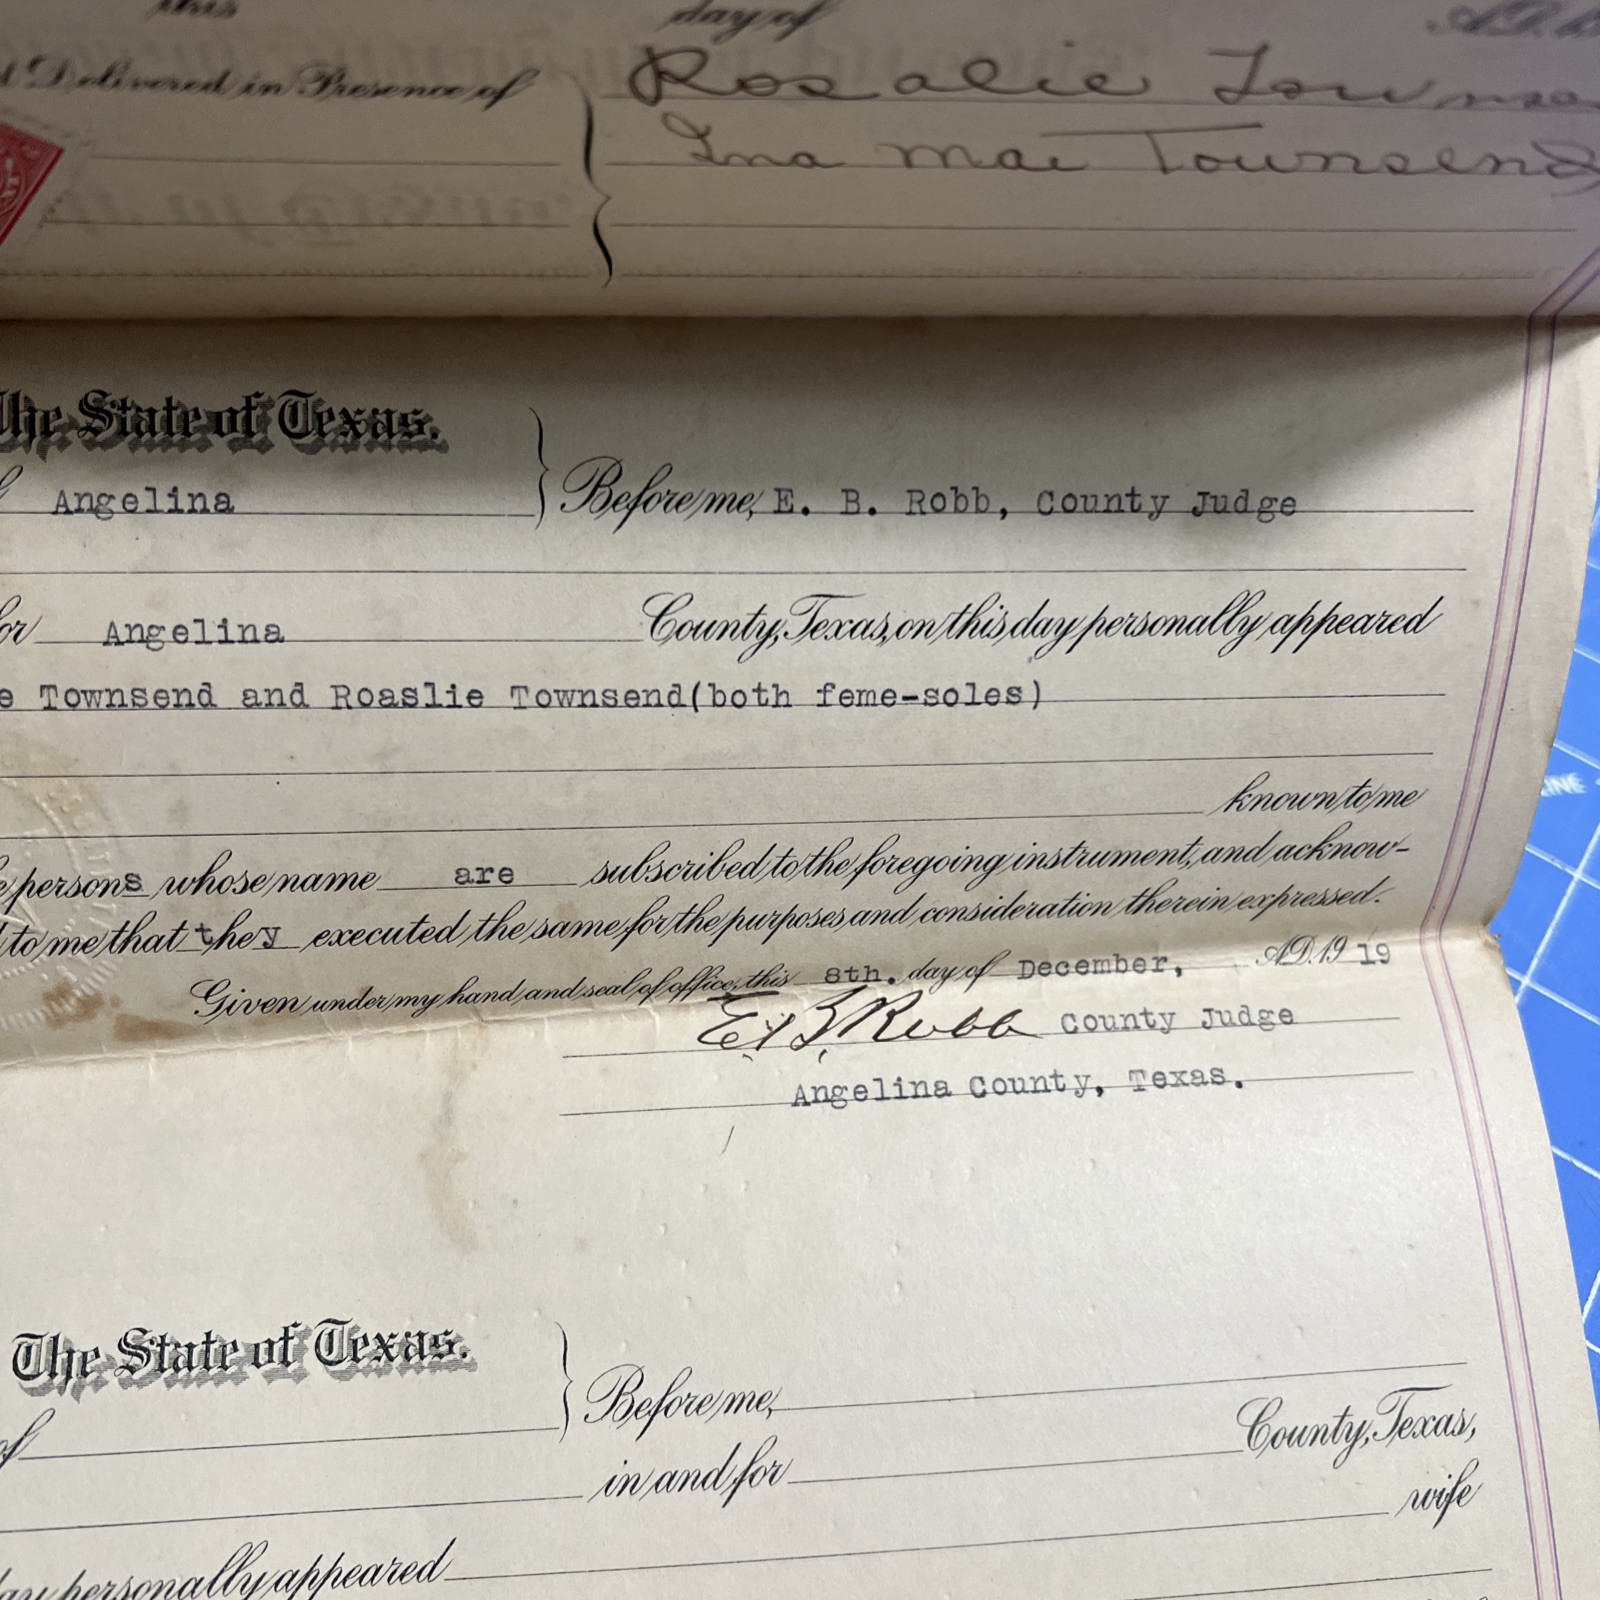 this day of A.D. 19
Delivered in Presence of Rosalie Townsen
Ina Mae Townsend
The State of Texas.
Angelina Before me, E. B. Robb, County Judge
or Angelina County, Texas, on this day personally appeared
e Townsend and Roaslie Townsend(both feme-soles)
known to me
e persons whose name are subscribed to the foregoing instrument, and acknow-
to me that they executed the same for the purposes and consideration therein expressed.
Given under my hand and seal of office, this 8th. day of December, A.D. 19 19
E. B. Robb County Judge
Angelina County, Texas.
The State of Texas.
of Before me,
County, Texas,
in and for
wife
day personally appeared